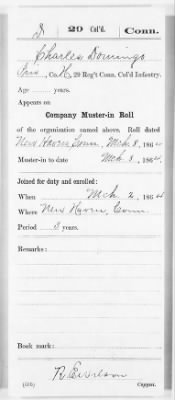 D 29 Col'd. Conn.
Charles Domingo
Co. H, 29 Reg't Conn. Col'd Infantry.
Age years.
Appears on
Company Muster-in Roll
of the organization named above. Roll dated
New Haven Conn, Mch 8, 1864
Muster-in to date Mch 8, 1864
Joined for duty and enrolled:
When Mch 2, 1864
Where New Haven, Conn.
Period 3 years.
Remarks:
Book mark:
Copyist.